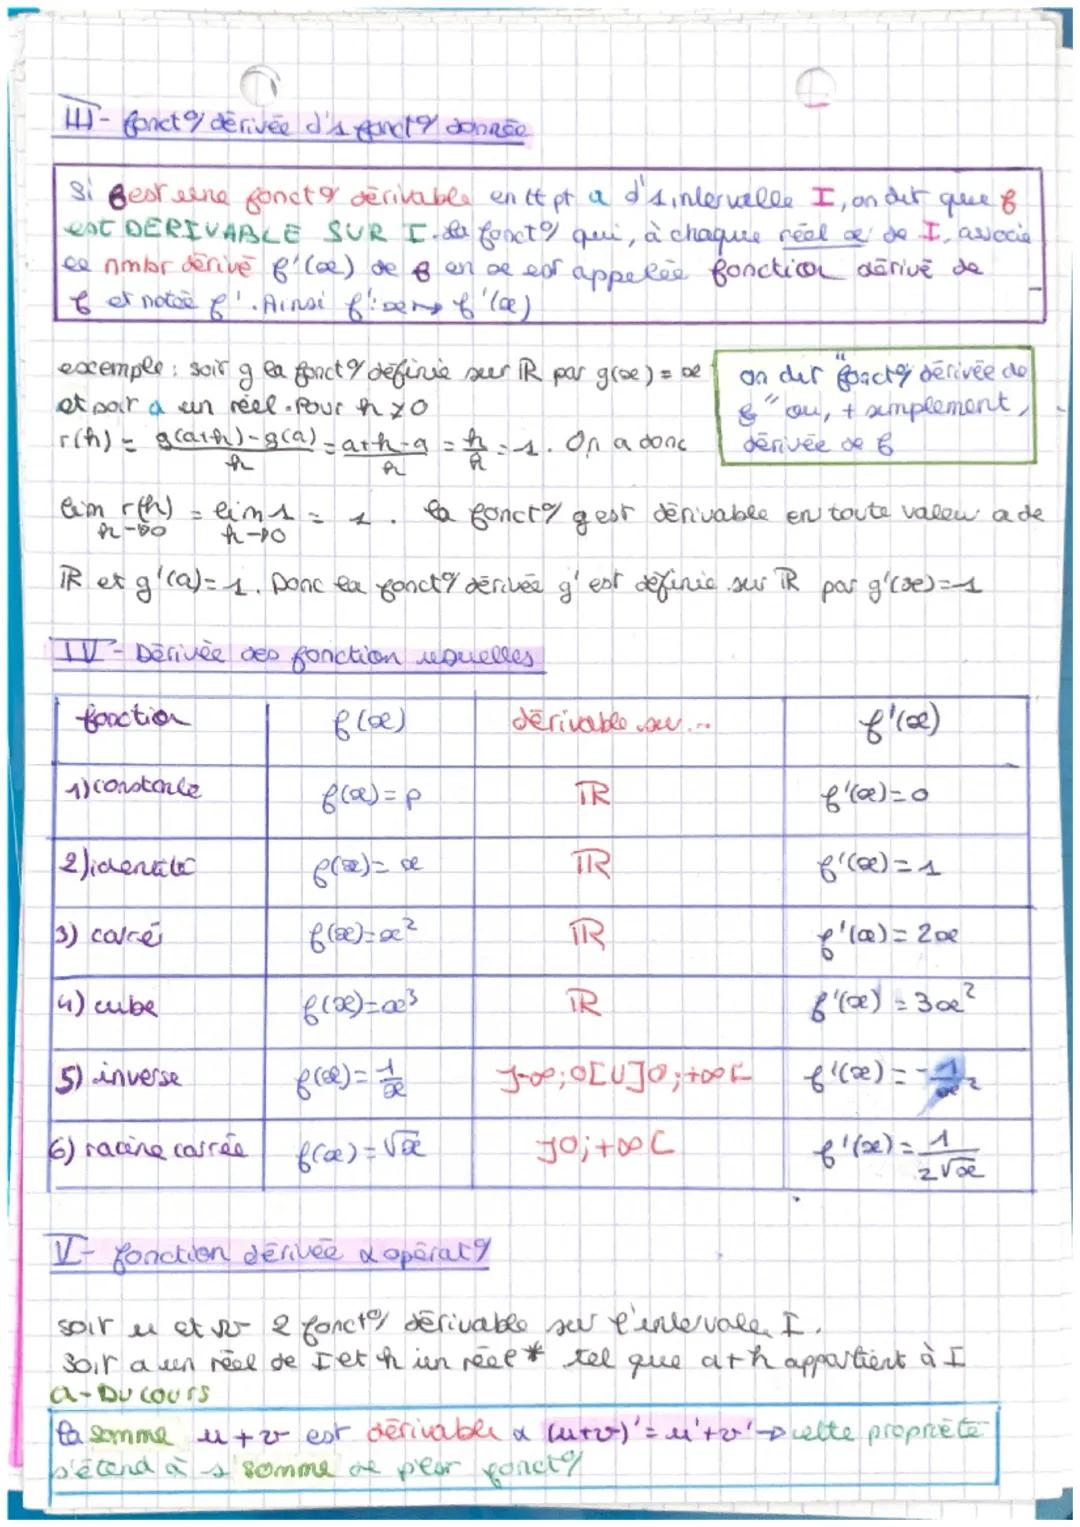 III - fonct° dérivée d'1 fonct° donnée
Si f est une fonct° dérivable en tt pt a d'1 intervalle I, on dit que f
est DERIVABLE SUR I. la fonct° qui, à chaque réel x de I, associe
le nmbr dérivé f'(x) de f en x est appelée fonction dérivé de
f et notée f'. Ainsi f': x ↦ f'(x)
exemple : soit g la fonct° définie sur ℝ par g(x) = x
et soit a un réel. Pour h ≠ 0
r(h) = g(a+h)-g(a)/h = a+h-a/h = h/h = 1. On a donc
on dit "fonct° dérivée de
f" ou, + simplement,
dérivée de f
lim r(h) = lim 1 = 1. la fonct° g est dérivable en toute valeur a de
h→0 h→0
ℝ et g'(a) = 1. Donc la fonct° dérivée g' est définie sur ℝ par g'(x) = 1
IV - Dérivée des fonction usuelles
fonction f(x) dérivable sur... f'(x)
1) constante f(x) = p ℝ f'(x) = 0
2) identité f(x) = x ℝ f'(x) = 1
3) carré f(x) = x² ℝ f'(x) = 2x
4) cube f(x) = x³ ℝ f'(x) = 3x²
5) inverse f(x) = 1/x ]-∞;0[U]0;+∞[ f'(x) = -1/x²
6) racine carrée f(x) = √x ]0;+∞[ f'(x) = 1/2√x
V - fonction dérivée & opérat°
soit u et v 2 fonct° dérivable sur l'intervalle I.
Soit a un réel de I et h un réel* tel que a+h appartient à I
a - DU COURS
la somme u+v est dérivable & (u+v)' = u'+v' → cette propriété
s'étend à 1 somme de plsr fonct°